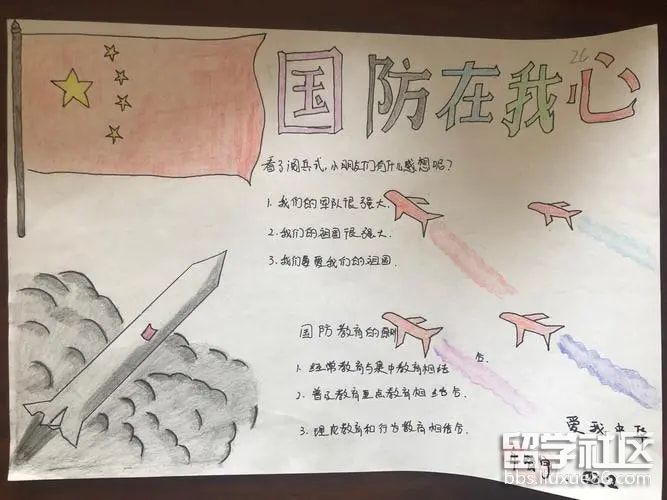 国防在我心
26
看了阅兵式，小朋友们有什么感想呢？
1. 我们的军队很强大.
2. 我们的祖国很强大.
3. 我们要爱我们的祖国.
国防教育的原则
1. 经常教育与集中教育相结合.
2. 普及教育重点教育相结合.
3. 理论教育和行为教育相结合.
爱我中华
留学社区
bbs.liuxue86.com